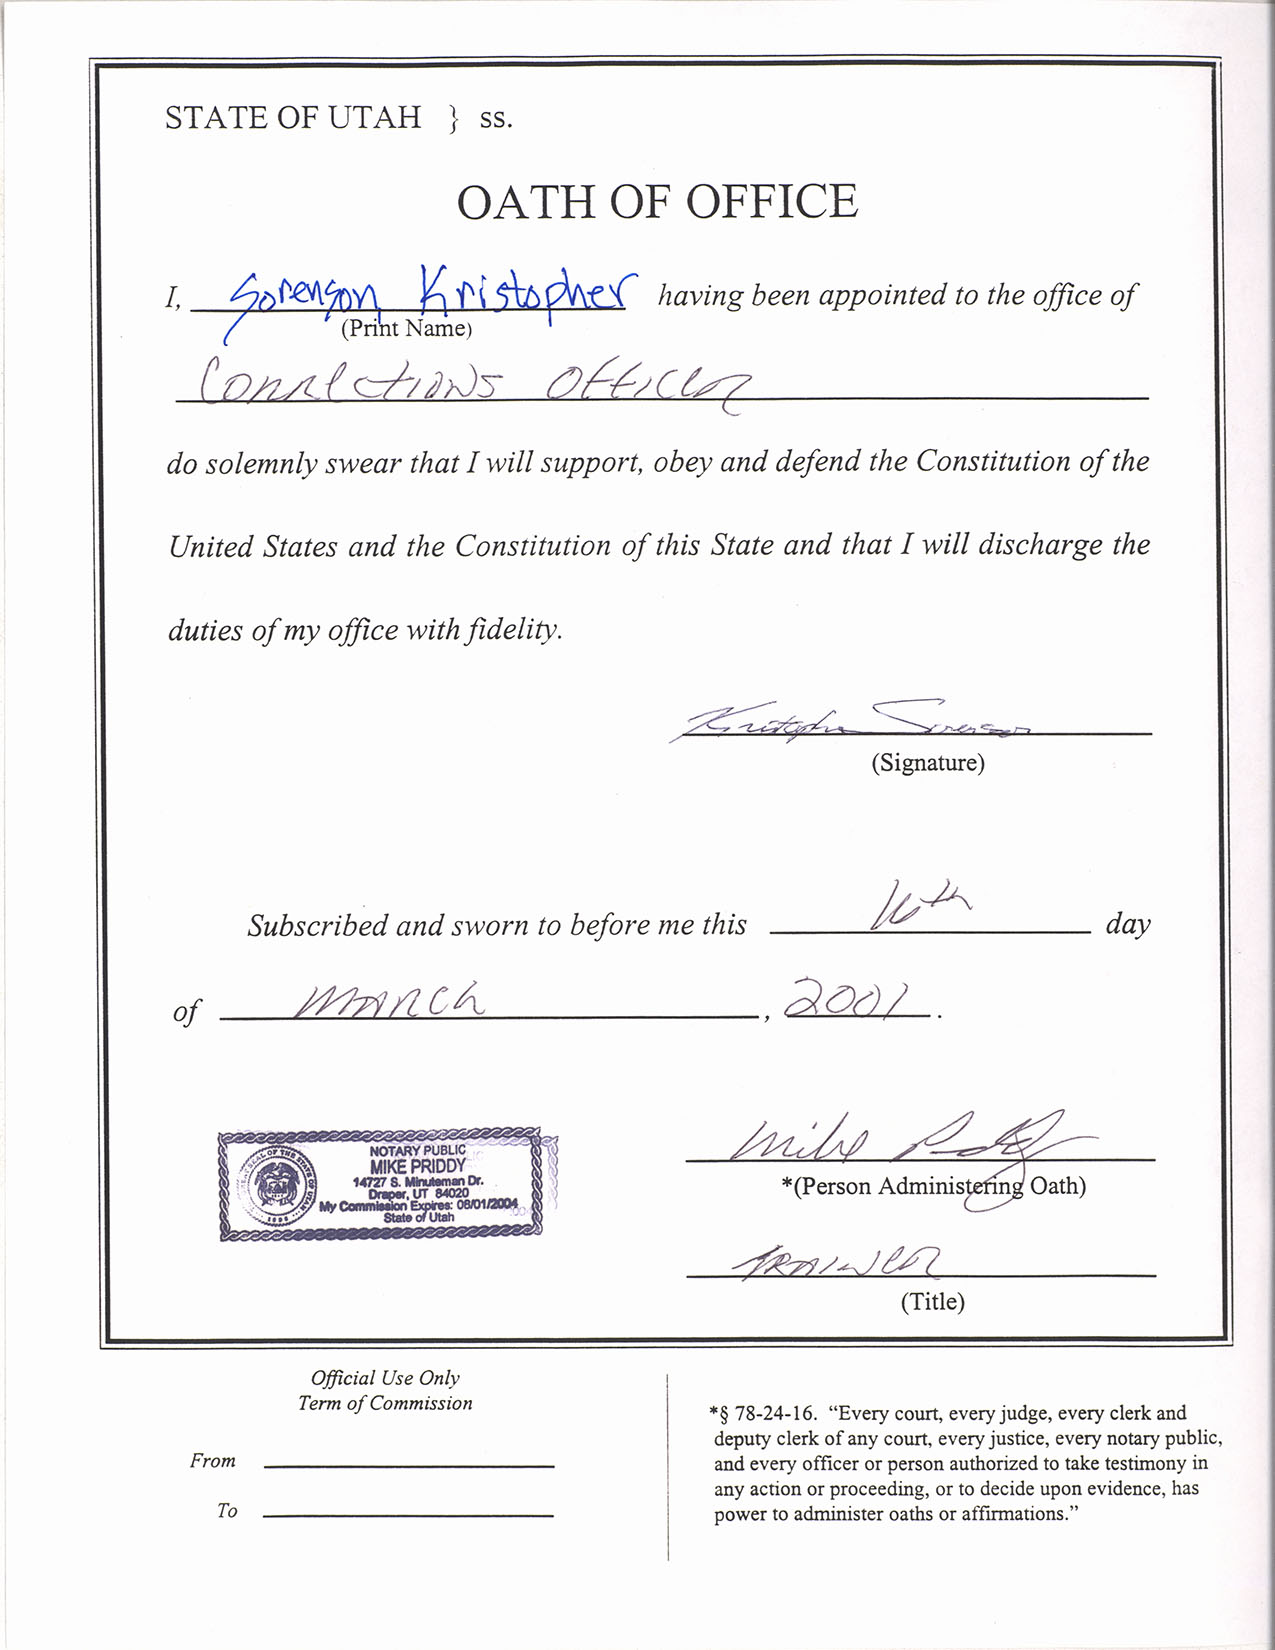 STATE OF UTAH } ss.
OATH OF OFFICE
I, Sorenson Kristopher having been appointed to the office of
(Print Name)
Corrections Officer
do solemnly swear that I will support, obey and defend the Constitution of the
United States and the Constitution of this State and that I will discharge the
duties of my office with fidelity.
Kristopher Sorenson
(Signature)
Subscribed and sworn to before me this 16th day
of March, 2001.
NOTARY PUBLIC
MIKE PRIDDY
14727 S. Minuteman Dr.
Draper, UT 84020
My Commission Expires: 08/01/2004
State of Utah
Mike Priddy
*(Person Administering Oath)
TRAINER
(Title)
Official Use Only
Term of Commission
From
To
*§ 78-24-16. “Every court, every judge, every clerk and
deputy clerk of any court, every justice, every notary public,
and every officer or person authorized to take testimony in
any action or proceeding, or to decide upon evidence, has
power to administer oaths or affirmations.”